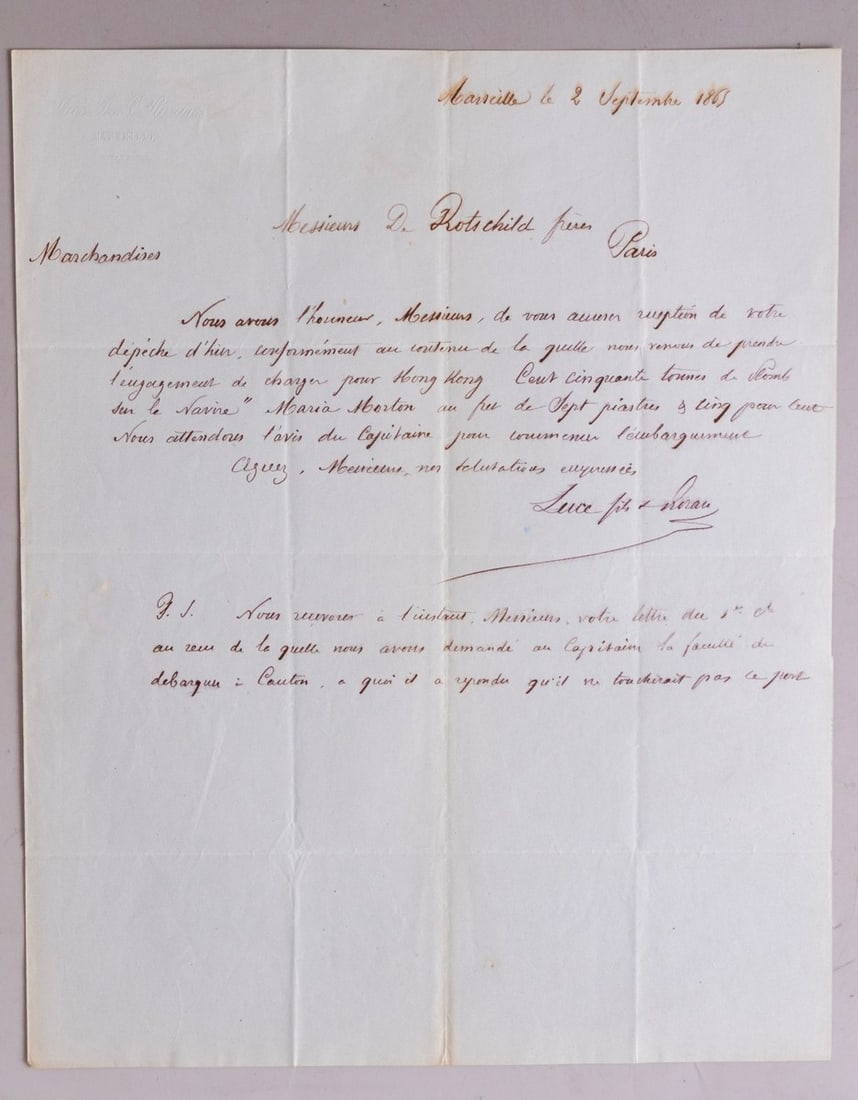 MARSEILLE
Marseille le 2 Septembre 1865
Messieurs De Rotschild frères
Paris
Marchandises
Nous avons l'honneur, Messieurs, de vous accuser reception de votre
dépêche d'hier, conformément au contenu de la quelle nous venons de prendre
l'engagement de charger pour Hong Kong Cent cinquante tonnes de Plomb
sur le Navire " Maria Morton au fret de Sept piastres & Cinq pour Cent
Nous attendons l'avis du Capitaine pour commencer l'embarquement
Agréez, Messieurs, nos salutations empressées
Luce fils &
P. S. Nous recevons à l'instant, Messieurs, votre lettre du 1er Ct
au recu de la quelle nous avons demandé au Capitaine la faculté de
debarquer à Canton, a quoi il a repondu qu'il ne toucherait pas ce port